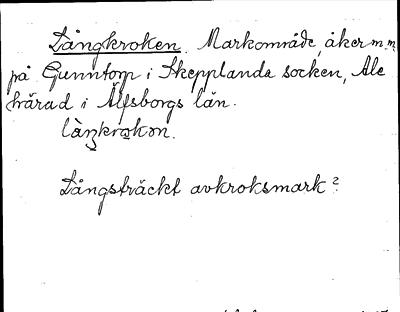 Långkroken. Markområde, åker m.m.
på Gunntorp i Skepplanda socken, Ale
härad i Älfsborgs län.
Långsträckt avkroksmark?